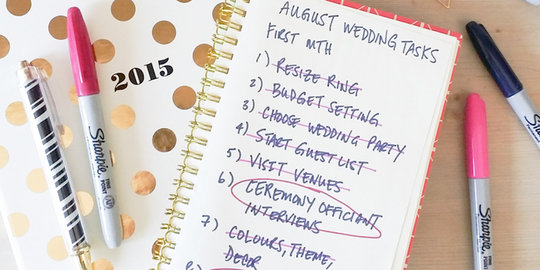 2015
Sharpie
FINE POINT
AUGUST WEDDING TASKS
FIRST MTH
1) RESIZE RING
2) BUDGET SETTING
3) CHOOSE WEDDING PARTY
4) START GUEST LIST
5) VISIT VENUES
6) CEREMONY OFFICIANT
INTERVIEWS
7) COLOURS, THEME,
DECOR
Sharpie
Sharpie